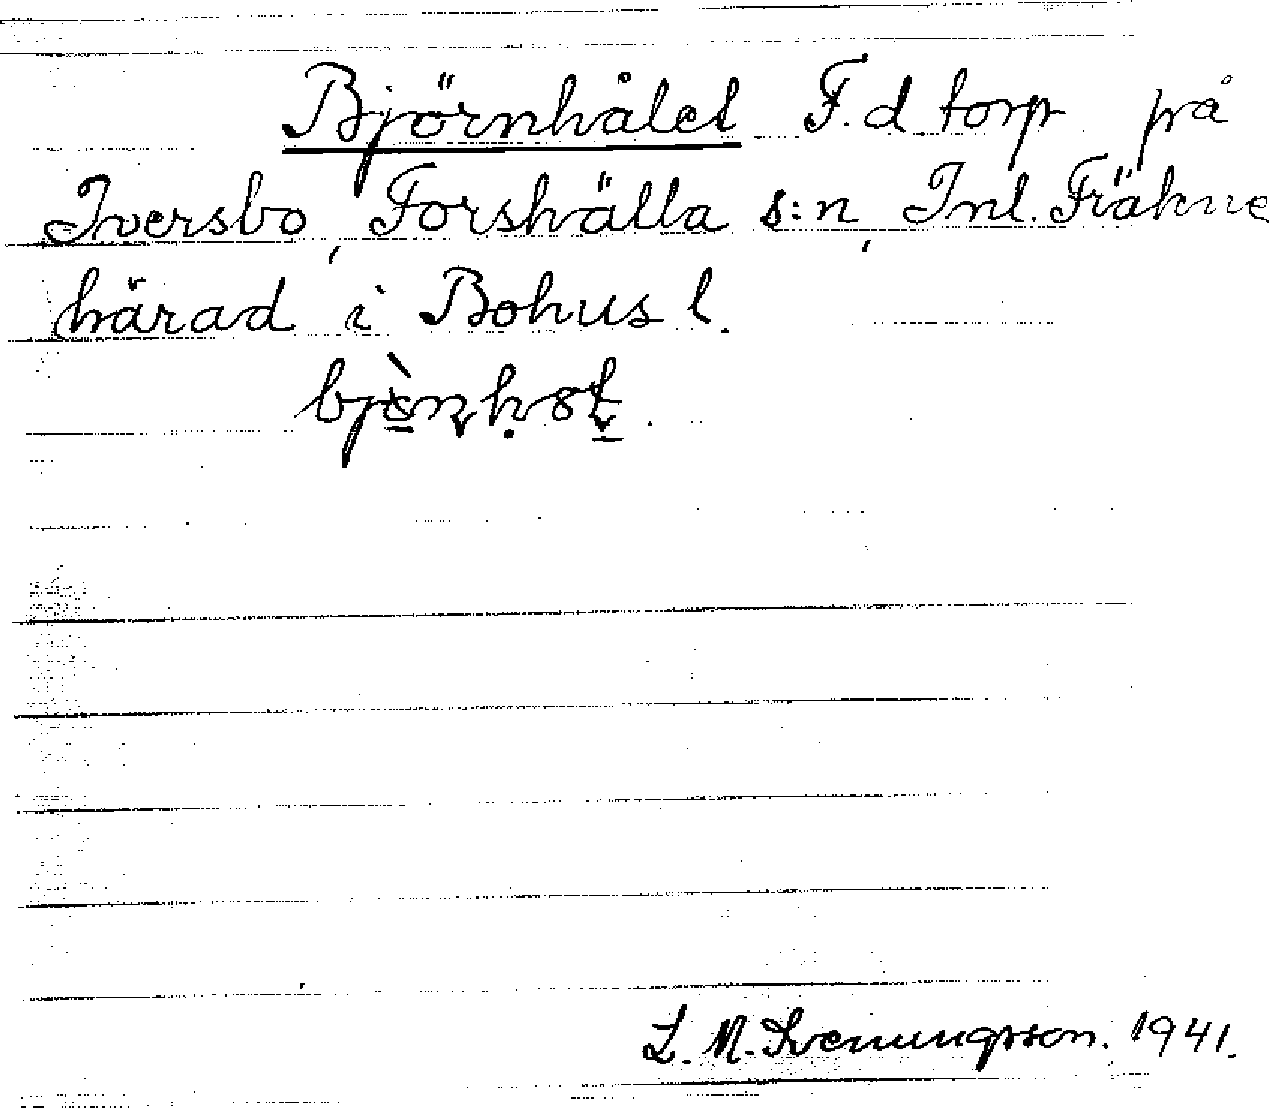 Björnhålet F.d torp på
Iversbo, Forshälla s:n, Inl. Fräkne
härad i Bohus l.
L. M. Svenungsson. 1941.